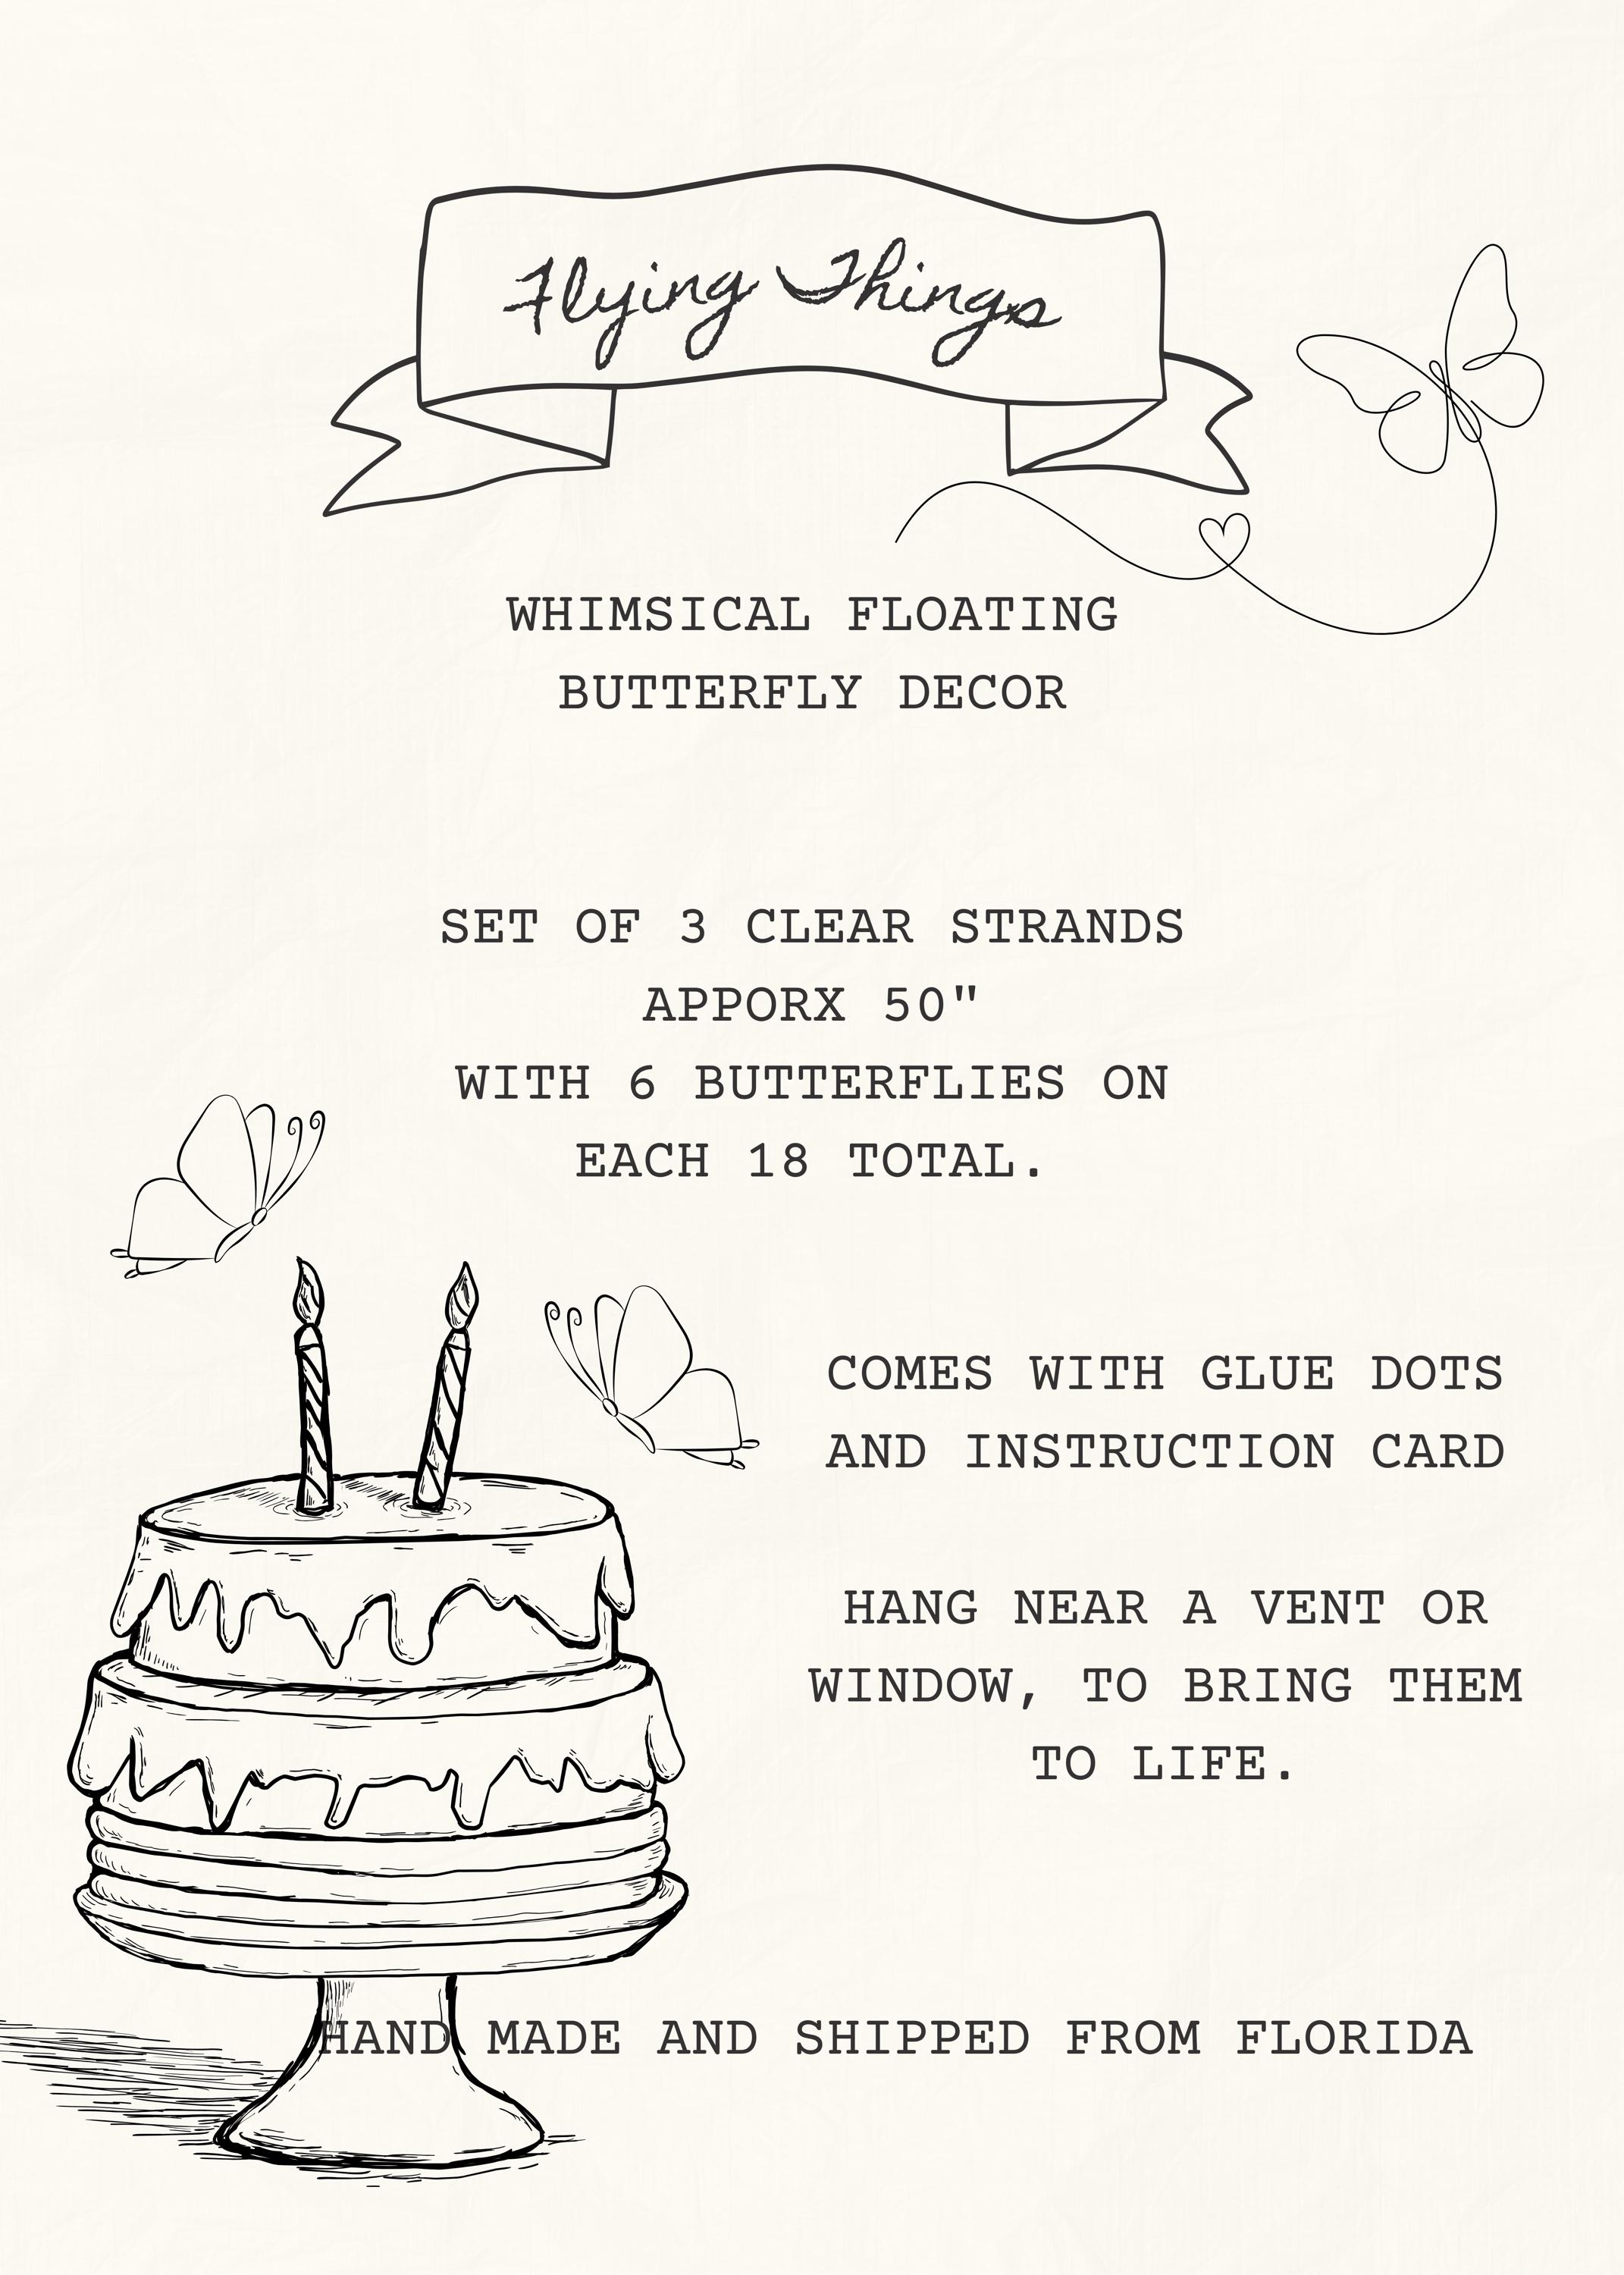 Flying Things
WHIMSICAL FLOATING
BUTTERFLY DECOR
SET OF 3 CLEAR STRANDS
APPORX 50"
WITH 6 BUTTERFLIES ON
EACH 18 TOTAL.
COMES WITH GLUE DOTS
AND INSTRUCTION CARD
HANG NEAR A VENT OR
WINDOW, TO BRING THEM
TO LIFE.
HAND MADE AND SHIPPED FROM FLORIDA